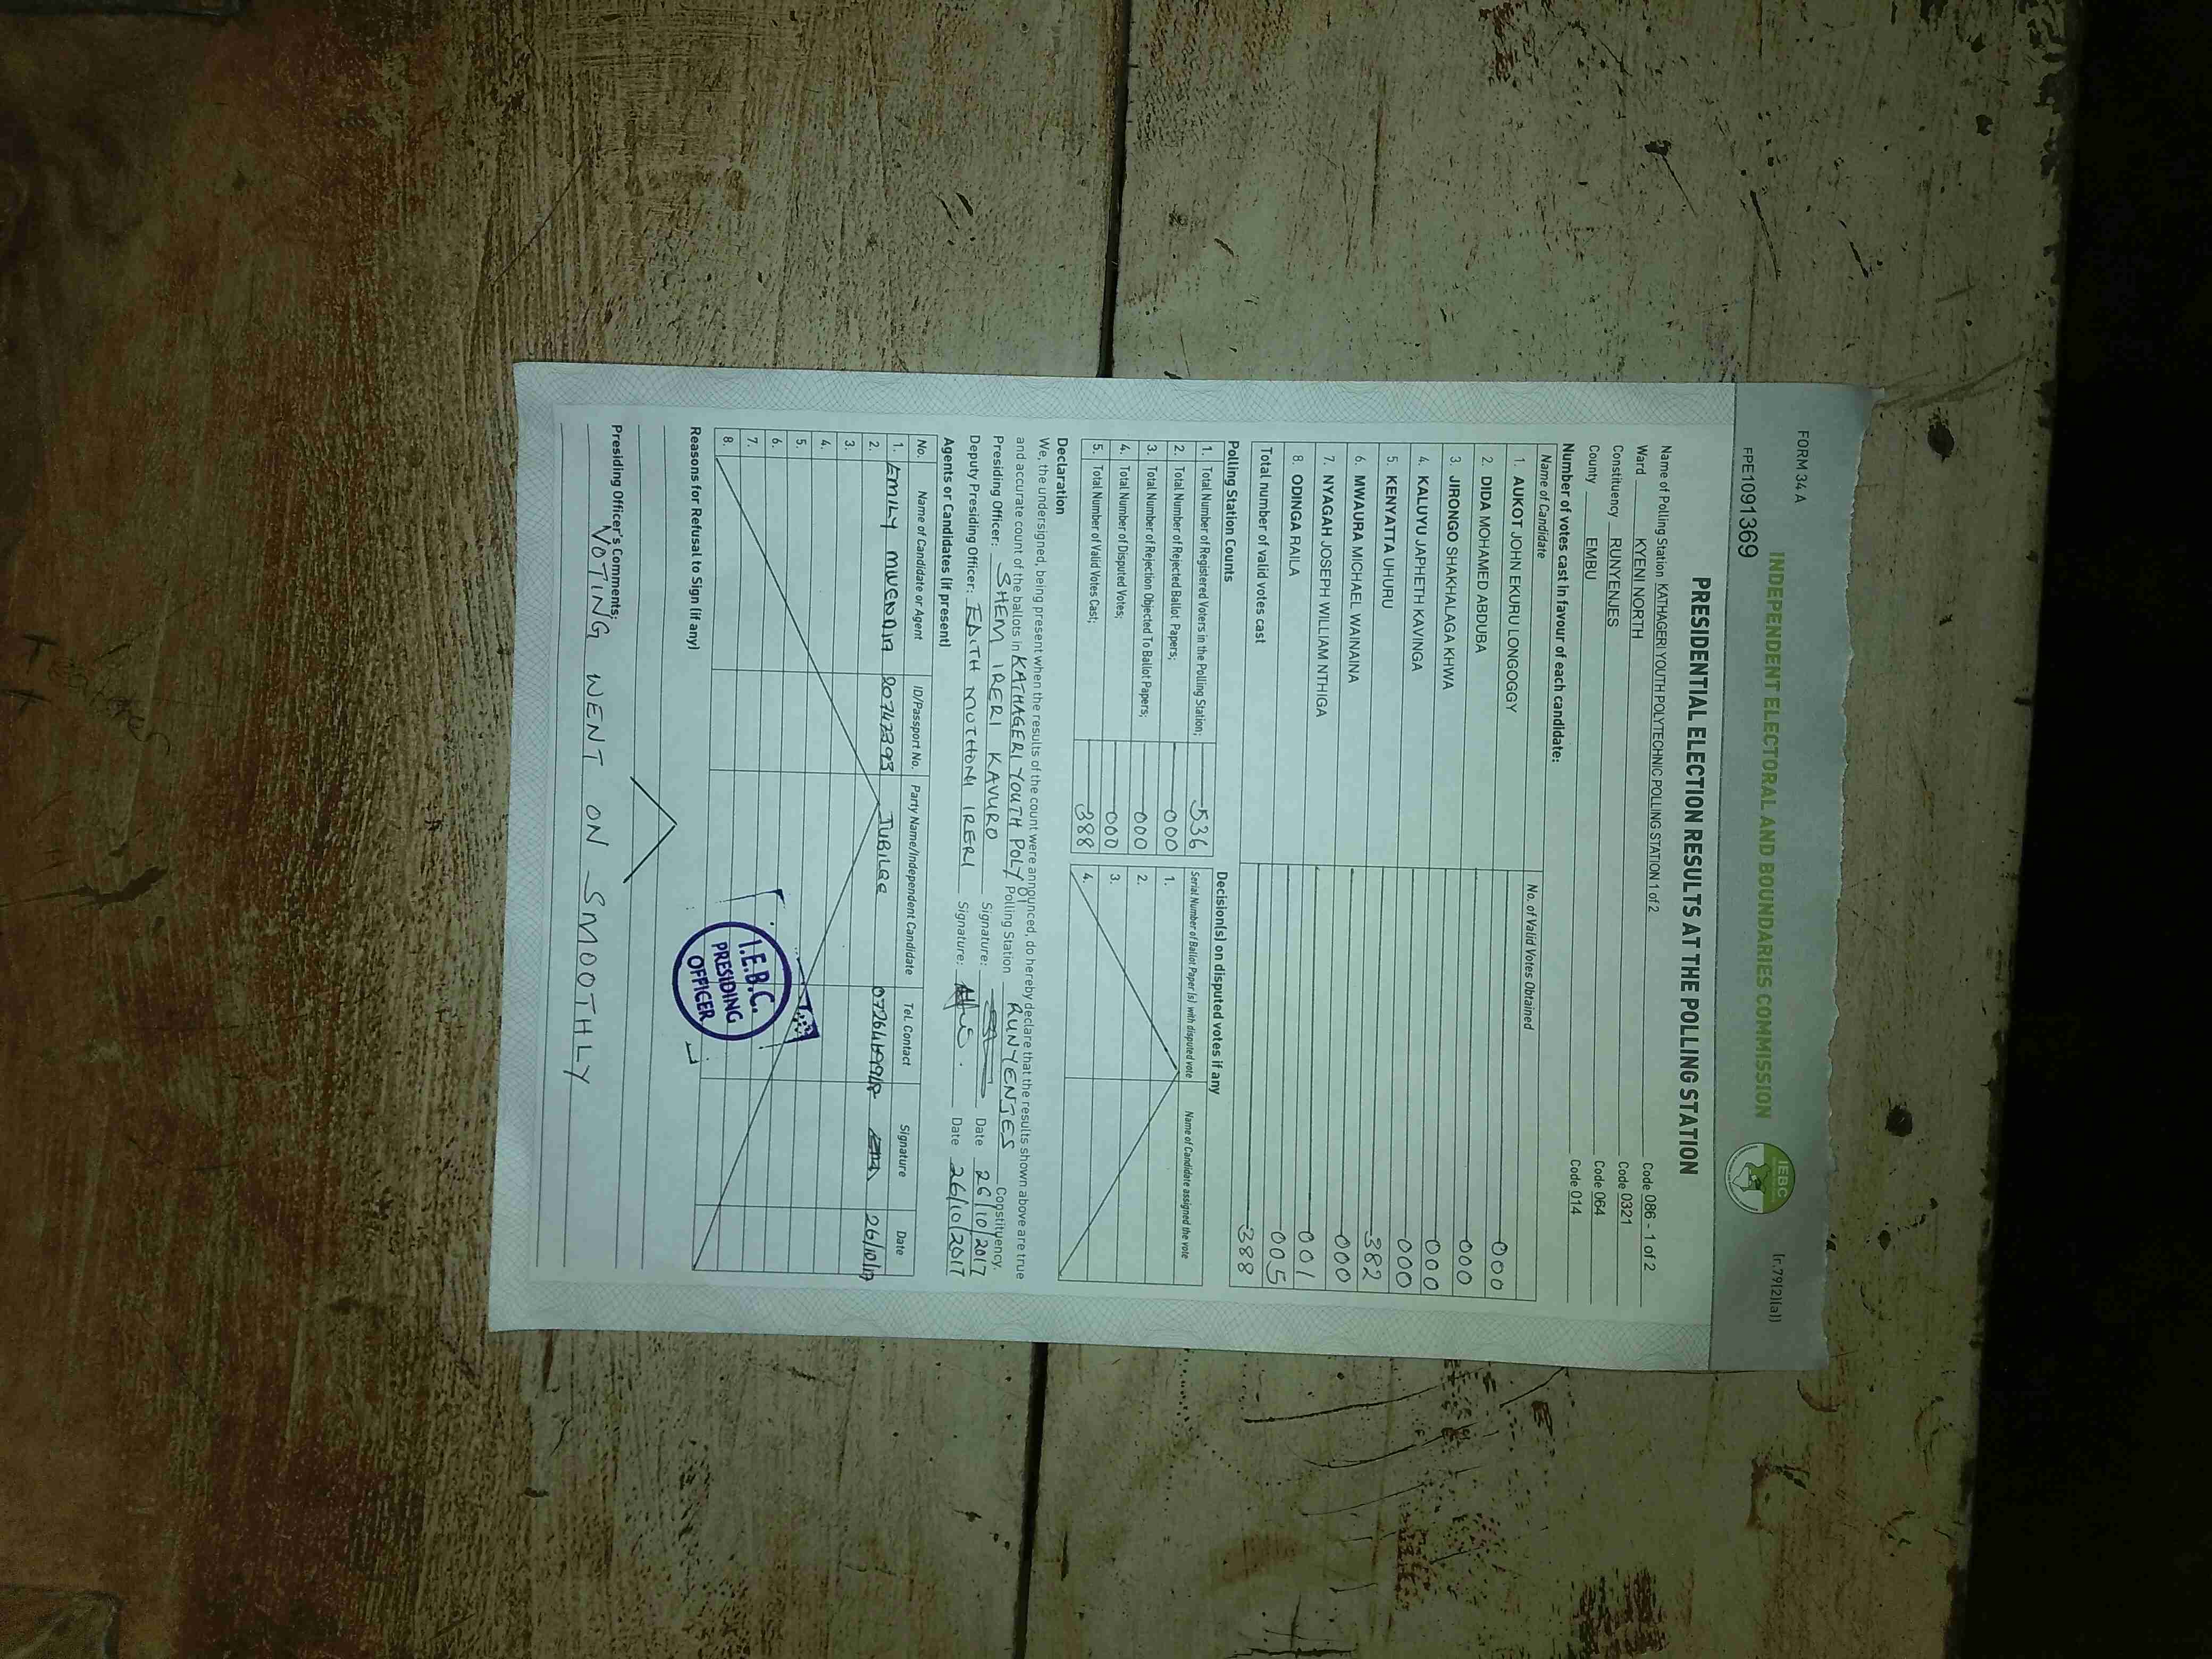 FORM 34 A
[r.79(2)(a)]
INDEPENDENT ELECTORAL AND BOUNDARIES COMMISSION
IEBC
FPE1091369
PRESIDENTIAL ELECTION RESULTS AT THE POLLING STATION
Name of Polling Station KATHAGERI YOUTH POLYTECHNIC POLLING STATION 1 of 2 Code 086 - 1 of 2
Ward KYENI NORTH Code 0321
Constituency RUNYENJES Code 064
County EMBU Code 014
Number of votes cast in favour of each candidate:
Name of Candidate No. of Valid Votes Obtained
1. AUKOT JOHN EKURU LONGOGGY 000
2. DIDA MOHAMED ABDUBA 000
3. JIRONGO SHAKHALAGA KHWA 000
4. KALUYU JAPHETH KAVINGA 000
5. KENYATTA UHURU 382
6. MWAURA MICHAEL WAINAINA 000
7. NYAGAH JOSEPH WILLIAM NTHIGA 001
8. ODINGA RAILA 005
Total number of valid votes cast 388
Polling Station Counts
1. Total Number of Registered Voters in the Polling Station; 536
2. Total Number of Rejected Ballot Papers; 000
3. Total Number of Rejection Objected To Ballot Papers; 000
4. Total Number of Disputed Votes; 000
5. Total Number of Valid Votes Cast; 388
Decision(s) on disputed votes if any
Serial Number of Ballot Paper (s) with disputed vote Name of Candidate assigned the vote
1.
2.
3.
4.
Declaration
We, the undersigned, being present when the results of the count were announced, do hereby declare that the results shown above are true
and accurate count of the ballots in KATHAGERI YOUTH POLY 01 Polling Station RUNYENJES Constituency.
Presiding Officer: SHEM IRERI KAVURO Signature: Date 26/10/2017
Deputy Presiding Officer: FAITH MUTHONI IRERI Signature: Date 26/10/2017
Agents or Candidates (if present)
No. Name of Candidate or Agent ID/Passport No. Party Name/Independent Candidate Tel. Contact Signature Date
1. EMILY 20742393 JUBILEE 26/10/17
2.
3.
4.
5.
6.
7.
8.
I.E.B.C.
PRESIDING
OFFICER
Reasons for Refusal to Sign (if any)
Presiding Officer's Comments;
VOTING WENT ON SMOOTHLY